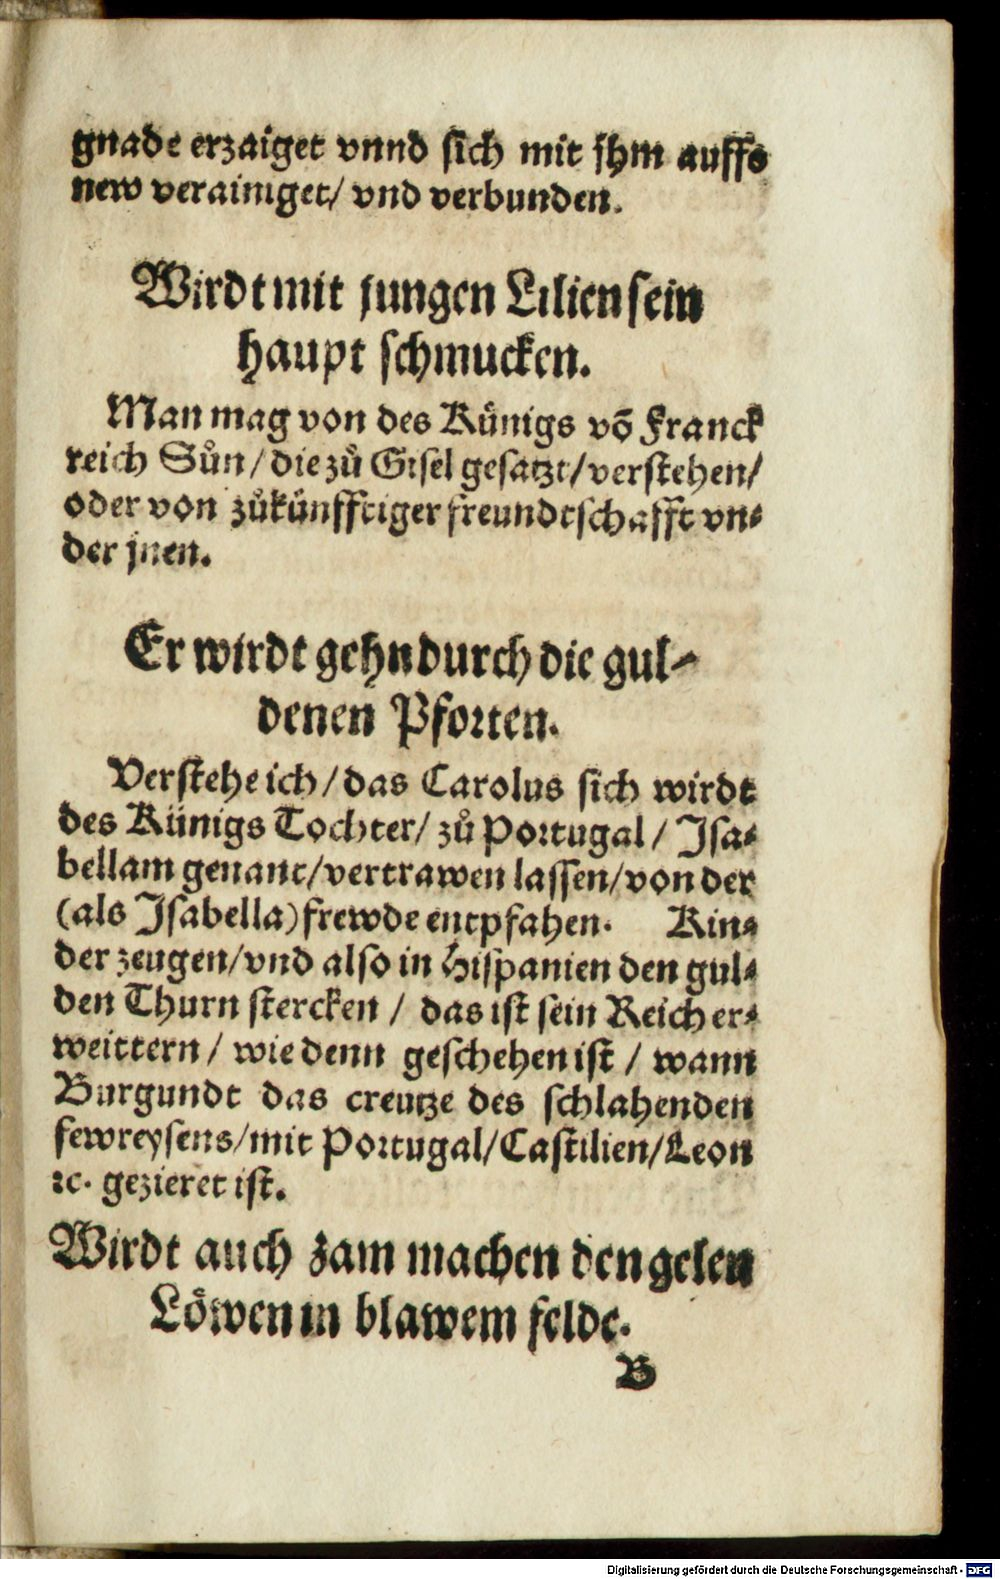 gnade erzaiget vnnd sich mit jhm auffs
new verainiget/ vnd verbunden.
Wirdt mit jungen Lilien sein
haupt schmucken.
Man mag von des Kůnigs võ Franck
reich Sůn/ die zů Gisel gesatzt/ verstehen/
oder von zůkünfftiger freundtschafft vn-
der jnen.
Er wirdt gehn durch die gul-
denen Pforten.
Verstehe ich/ das Carolus sich wirdt
des Künigs Tochter/ zů Portugal/ Isa-
bellam genant/ vertrawen lassen/ von der
(als Isabella) frewde entpfahen. Kin-
der zeugen/ vnd also in Hispanien den gul-
den Thurn stercken/ das ist sein Reich er-
weittern/ wie denn geschehen ist/ wann
Burgundt das creutze des schlahenden
fewreysens/ mit Portugal/ Castilien/ Leon
ꝛc. gezieret ist.
Wirdt auch zam machen den gelen
Löwen in blawem felde.
B
Digitalisierung gefördert durch die Deutsche Forschungsgemeinschaft - DFG